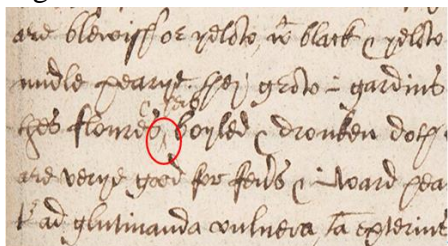 are blewiss or yelow, wt black & yelow
midle pearye. they grow in gardins
thes flowres, boyled & dronken doth
are verye good for fevs & inward pea
t ad glutinanda vulnera ta exterius